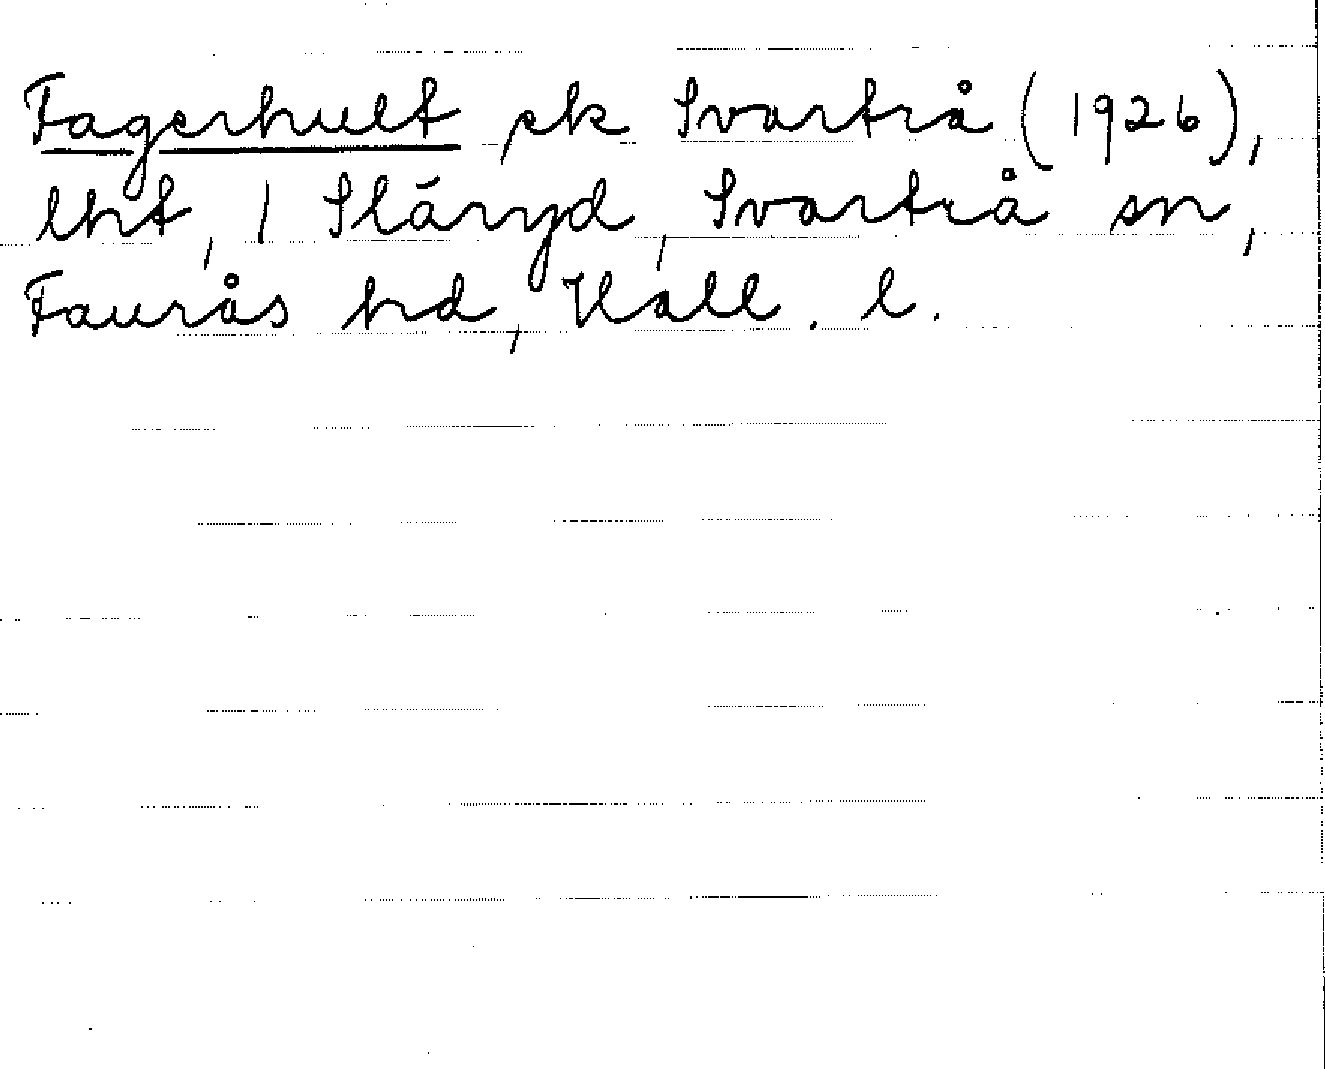 Fagerhult, ek Svartrå (1926),
lht, 1 Släryd, Svartrå sn,
Faurås hd, Hall. l.